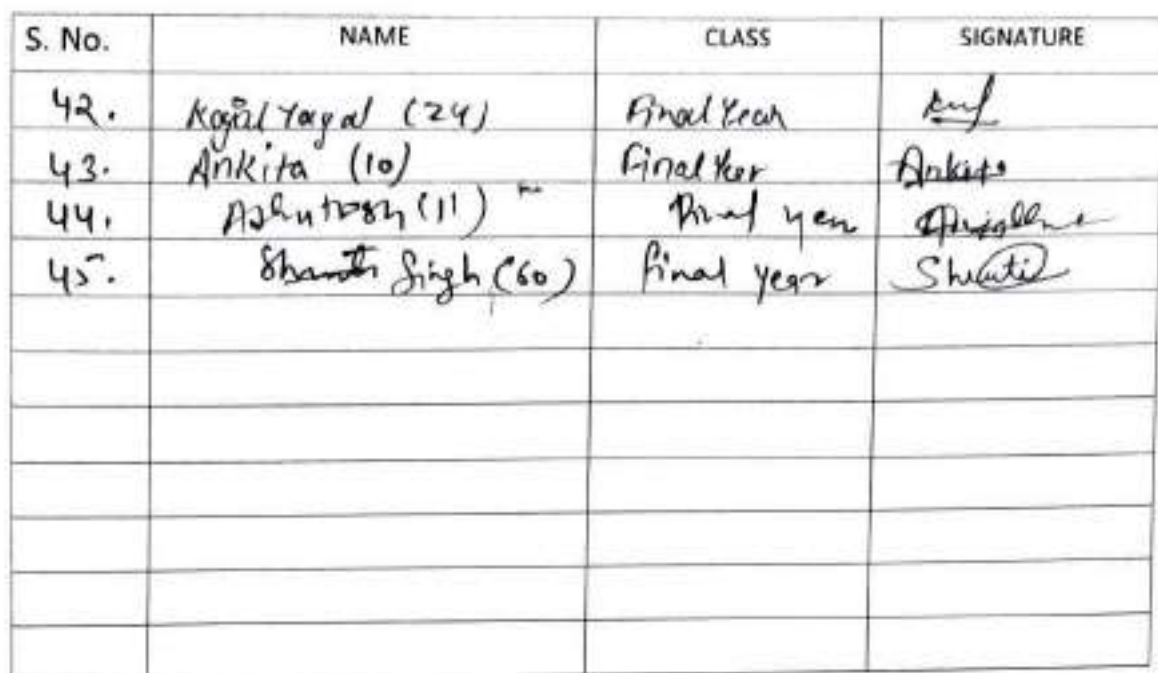 S. No. NAME CLASS SIGNATURE
42. Kajal Tagal (24) Final Year
43. Ankita (10) Final Year Ankita
44. Ashutosh (11) Final year
45. Singh (60) final year Shruti